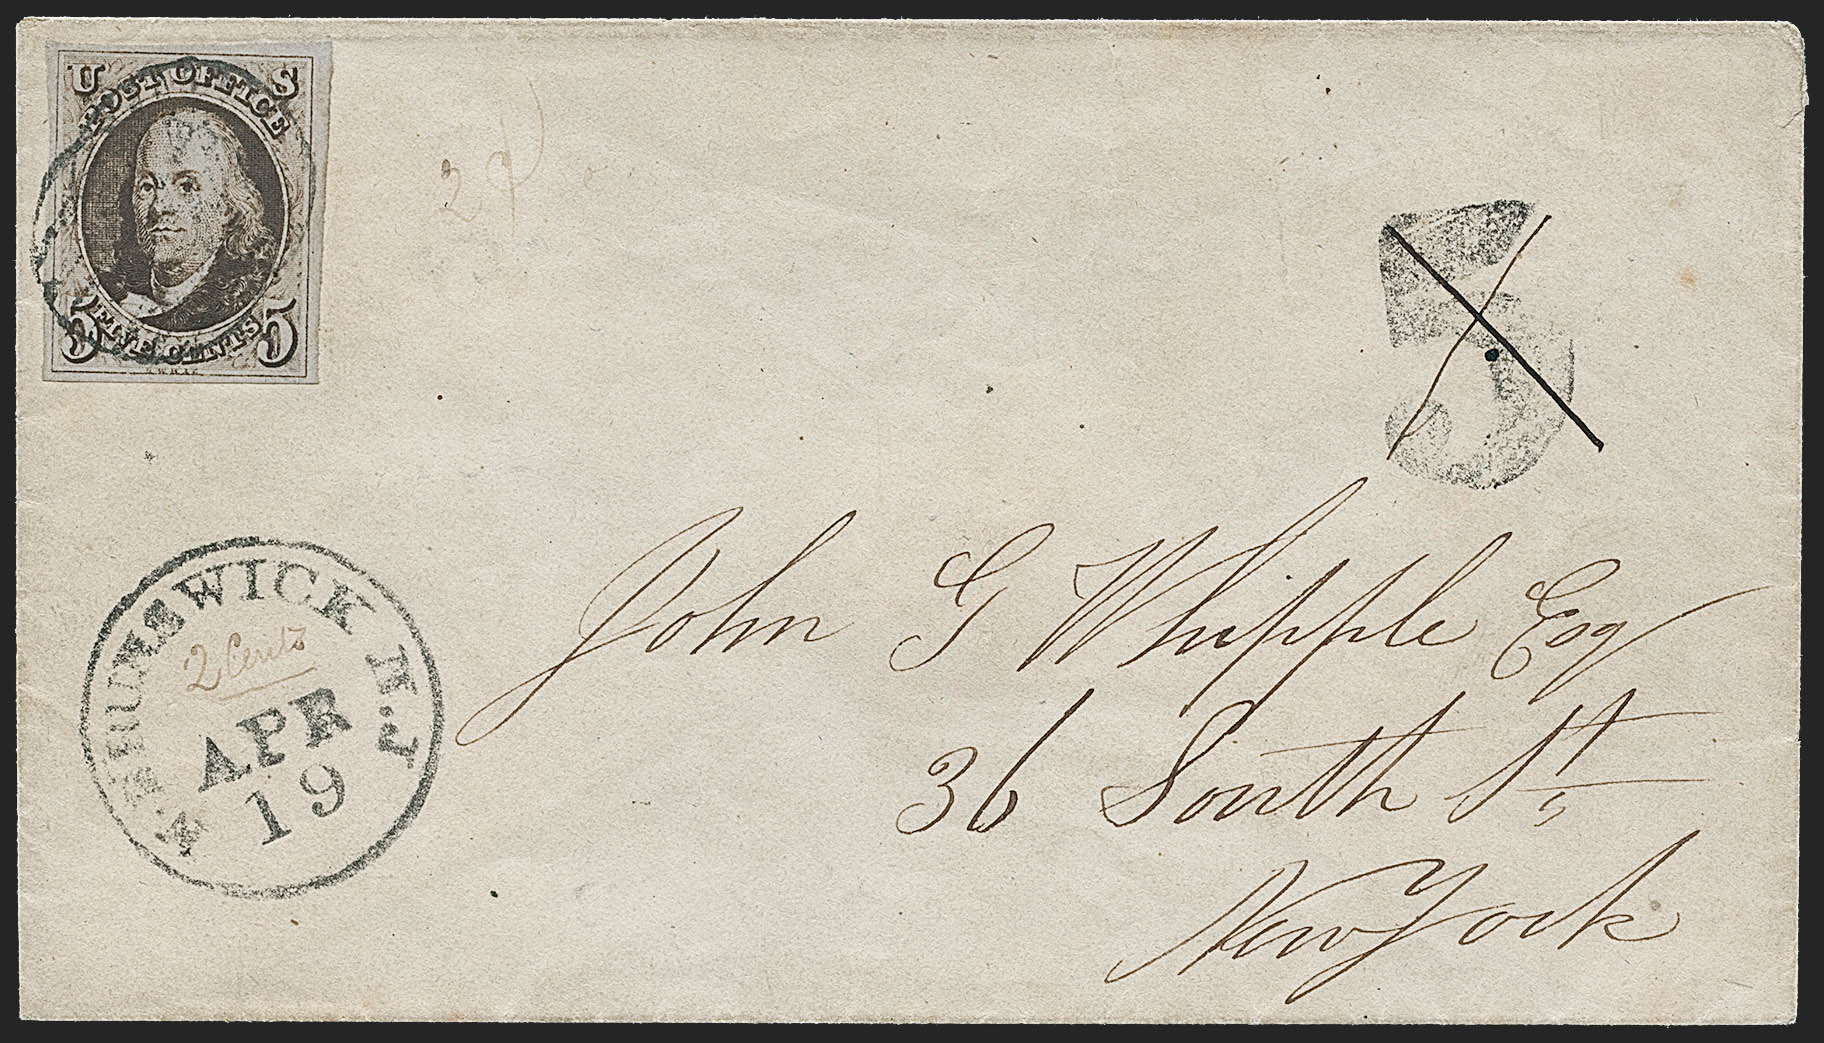 U S
POST OFFICE
5 FIVE CENTS 5
2
5
N. BRUNSWICK N.J
2 Cents
APR
19
John G Whipple Esq
36 South St,
New York